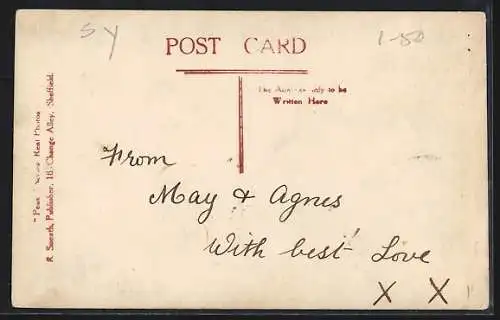 SY
1-50
POST CARD
The Address only to be
Written Here
"Peak" Series Real Photos
R. Sneath, Publisher, 18, Change Alley, Sheffield.
From
May & Agnes
With best Love
X X